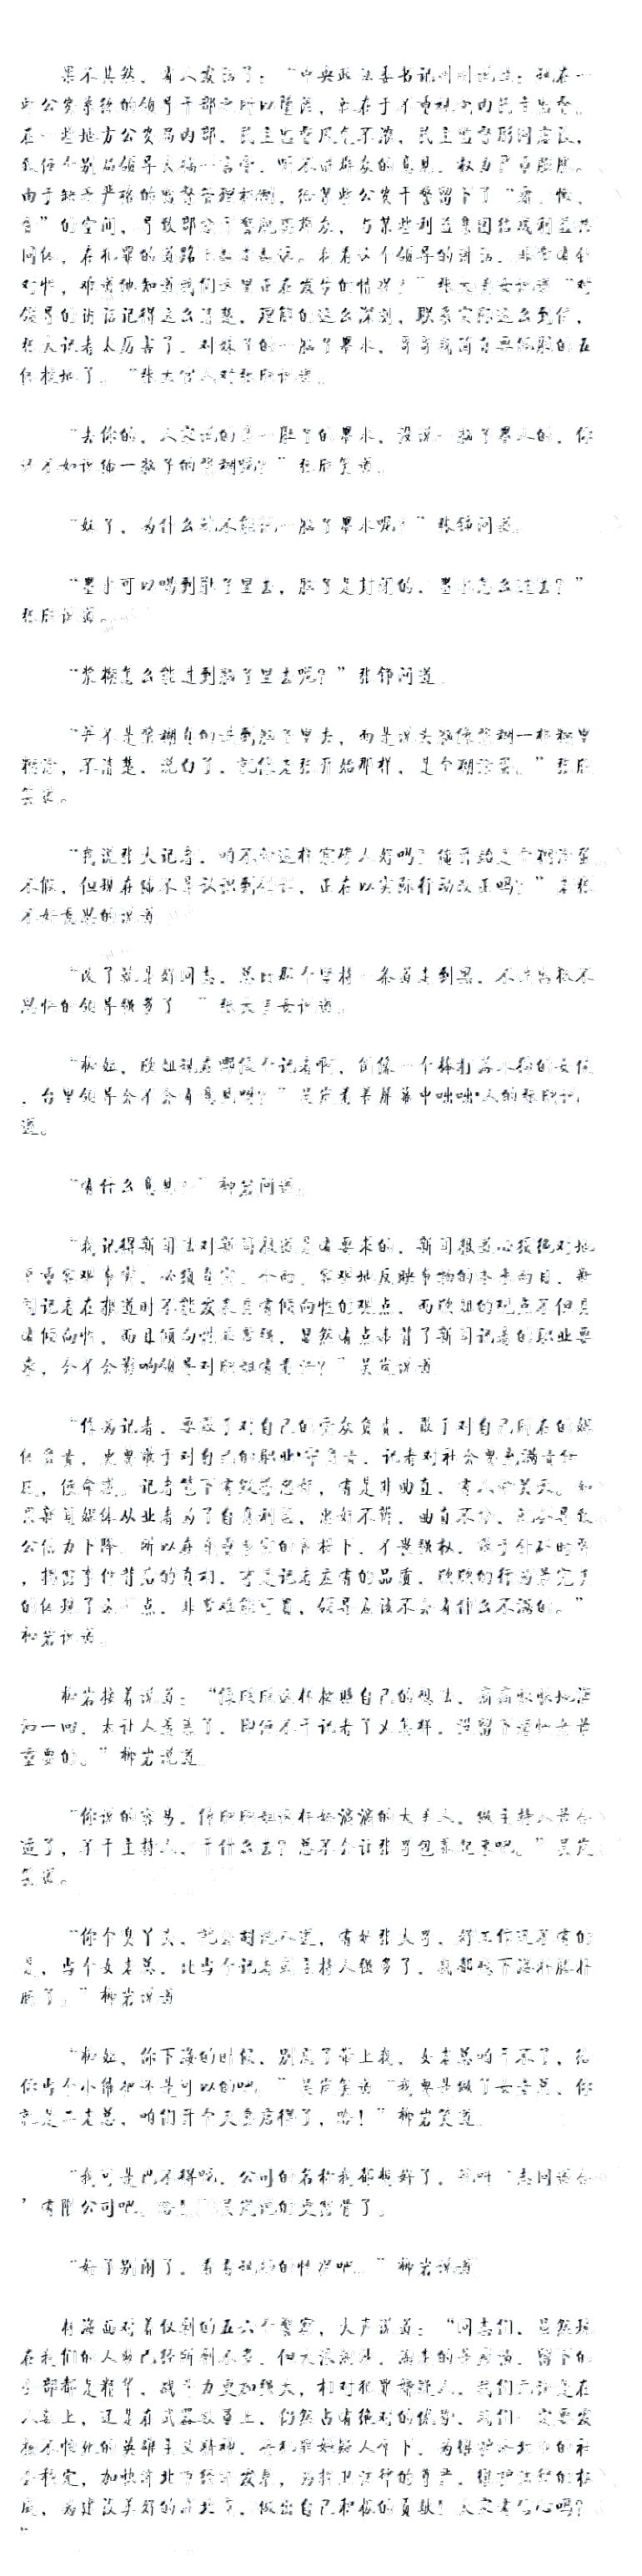 果不其然，有人发话了：“中央政法委书记
公安系统的领导干部之所以堕落，就在于不重视党内民主监督。
在一些地方公安局内部，民主监督风气不浓，民主监督形同虚设，
个别局领导大搞一言堂，听不进群众的意见，权力严重膨胀。
由于缺乏严格的监督管理机制，给某些公安干警留下了“
”的空间，导致部分干警脱离群众，与某些利益集团结成利益共
同体，在犯罪的道路上越走越远。我看这个领导的讲话，非常有针
对性，难道他知道我们这里正在发生的情况？”张大美女说道“对
领导的讲话记得这么清楚，理解的这么深刻，联系实际这么到位，
张大记者太厉害了，对妹子的一脑子墨水，哥哥我简直要佩服的五
体投地了。”张大官人对张欣说道。
“去你的，人家说的是一肚子的墨水，没说一脑子墨水的，你
还不如说偷一脑子的浆糊呢？”张欣笑道。
“妹子，为什么就不能说一脑子墨水呢？”张铮问道。
“墨水可以喝到肚子里去，脑子是封闭的，墨水怎么进去？”
张欣说道。
“浆糊怎么能过到脑子里去呢？”张铮问道。
“并不是浆糊真的进到脑子里去，而是说头脑像浆糊一样糊里
糊涂，不清楚，说白了，就像老张开始那样，是个糊涂蛋。”张欣
笑道。
“我说张大记者，咱不带这样寒碜人好吗？俺开始是个糊涂蛋
不假，但现在俺不是认识到错误，正在以实际行动改正吗？”老张
不好意思的说道。
“改了就是好同志，总比那个坚持一条道走到黑，不
思悔的领导强多了。”张大美女说道。
“柳姐，欣姐现在哪像个记者啊，倒像一个棒打落水狗的女侠
，台里领导会不会有意见啊？”吴岚看着屏幕中咄咄逼人的张欣说
道。
“有什么意见？”柳岩问道。
“我记得新闻法对新闻报道是有要求的，新闻报道必须绝对地
尊重客观事实，必须真实、全面、客观地反映事物的本来面目，新
闻记者在报道时不能发表具有倾向性的观点，而欣姐的观点不但具
有倾向性，而且倾向性非常强，显然有点违背了新闻记者的职业要
求，会不会影响领导对欣姐有看法？”吴岚说道。
“作为记者，要敢于对自己的受众负责，敢于对自己所在的媒
体负责，更要敢于对自己的职业操守负责，记者对社会要充满责任
感，使命感。记者笔下有毁誉忠奸，有是非曲直，有人命关天。如
果新闻媒体从业者为了自身利益，忠奸不辨，曲直不分，就会导致
公信力下降。所以在尊重事实的前提下，不畏强权，敢于针砭时弊
，揭露事件背后的真相，才是记者应有的品质，欣欣的行为是完美
的体现了这一点，非常难能可贵，领导应该不会有什么不满的。”
柳岩说道。
柳岩接着说道：“像欣欣这样按照自己的想法，痛痛快快地活
一回，太让人羡慕了，即使不干记者了又怎样，没留下遗憾是最
重要的。”柳岩说道。
“你说的容易，像欣欣姐这样娇滴滴的大美人，做主持人最合
适了，不干主持人，干什么去？总不会让张哥包养起来吧。”吴岚
笑道。
“你个臭丫头，就会胡说八道，有她张大哥，好工作还不有的
是，当个女老总，比当个记者或主持人强多了，我都想下海扑腾扑
腾了。”柳岩说道。
“柳姐，你下海的时候，别忘了带上我，女老总咱干不了，给
你当个小催把还是可以的吧。”吴岚笑道“我要是做了女老总，你
就是二老总，咱们开个夫妻店得了，哈！”柳岩笑道。
“我可是巴不得呢，公司的名称我都想好了，就叫‘志同道合
’有限公司吧。”吴岚说的更露骨了。
“好了别闹了，看看现场的情况吧。”柳岩说道。
面对着仅剩的五六个警察，大声说道：“同志们，虽然现
在我们的人数已经所剩不多，但大浪淘沙，淘走的是废渣，留下的
全部都是精华，战斗力更加强大，相对犯罪嫌疑人，我们无论是在
人数上，还是在武器数量上，仍然占有绝对的优势，我们一定要发
扬不怕死的英雄主义精神，将犯罪嫌疑人拿下，为维护北市的社
会稳定，加快北市经济发展，为捍卫法律的尊严，维护法律的权
威，为建设美好的北市，做出自己积极的贡献！大家有信心吗？
”